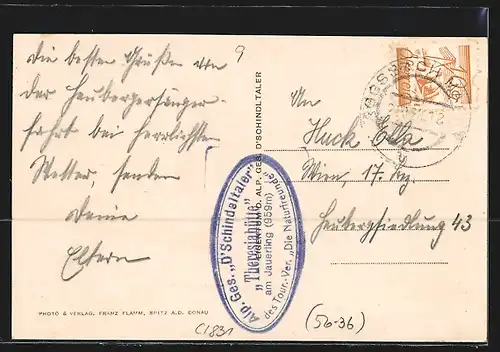 9
Die besten Grüße von
der Heubergersänger-
fahrt bei herrlichstem
Wetter, senden
Deine
Eltern
PHOTO & VERLAG. FRANZ FLAMM, SPITZ A.D. DONAU
EIGENTUM D. ALP. GES. D'SCHINDLTALER
Alp. Ges. „D'Schindeltaler”
„Theresiahütte”
am Jauerling (959m)
des Tour.-Ver. „Die Naturfreunde”
An
Huck Ella
Wien, 17. Bez.
Heubergsiedlung 43
C1831
(56-36)